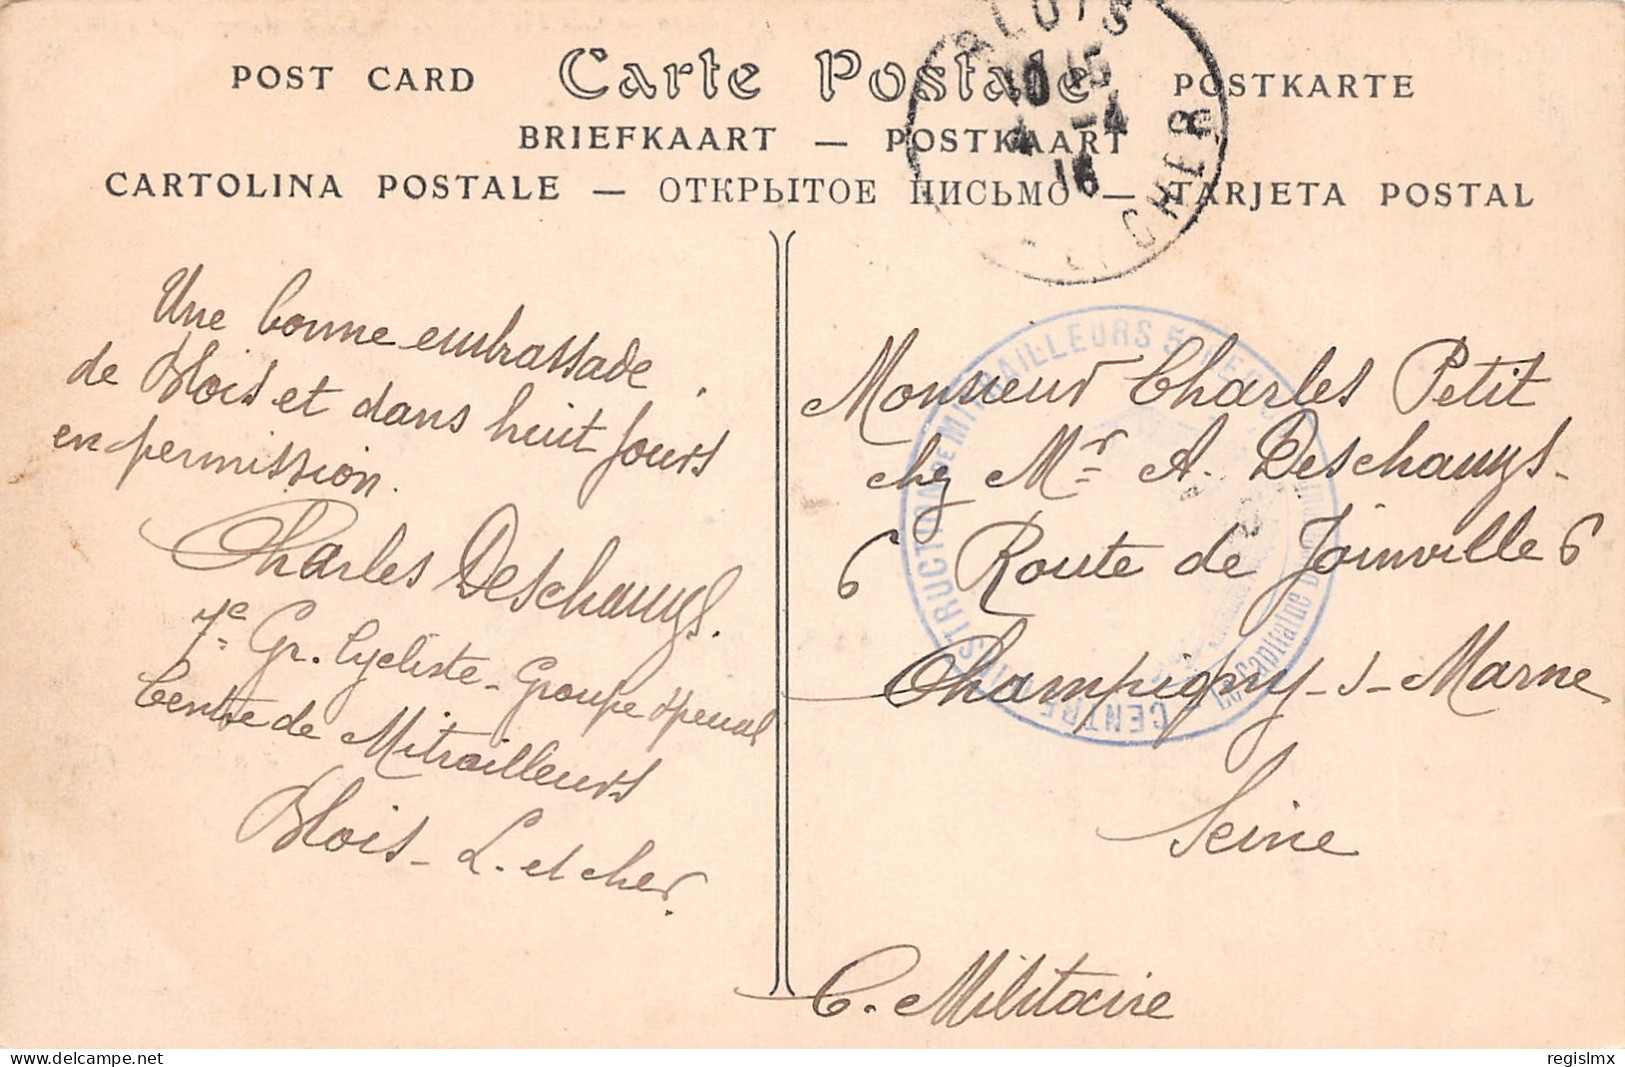 POST CARD Carte Postale POSTKARTE
BRIEFKAART — POSTKAART
CARTOLINA POSTALE — ОТКРЫТОЕ ПИСЬМО — TARJETA POSTAL
BLOIS
10 15
4 -4
16
CHER
Une bonne embrassade
de Blois et dans huit jours
en permission.
Charles Deschamps.
7e Gr. Cycliste - Groupe spécial
Centre de Mitrailleurs
Blois - L. et cher.
CENTRE D'INSTRUCTION DE MITRAILLEURS 5
Le Capitaine
Monsieur Charles Petit
chez Mr A. Deschamps-
6 Route de Joinville 6
Champigny-s-Marne
Seine
C. Militaire
regislmx